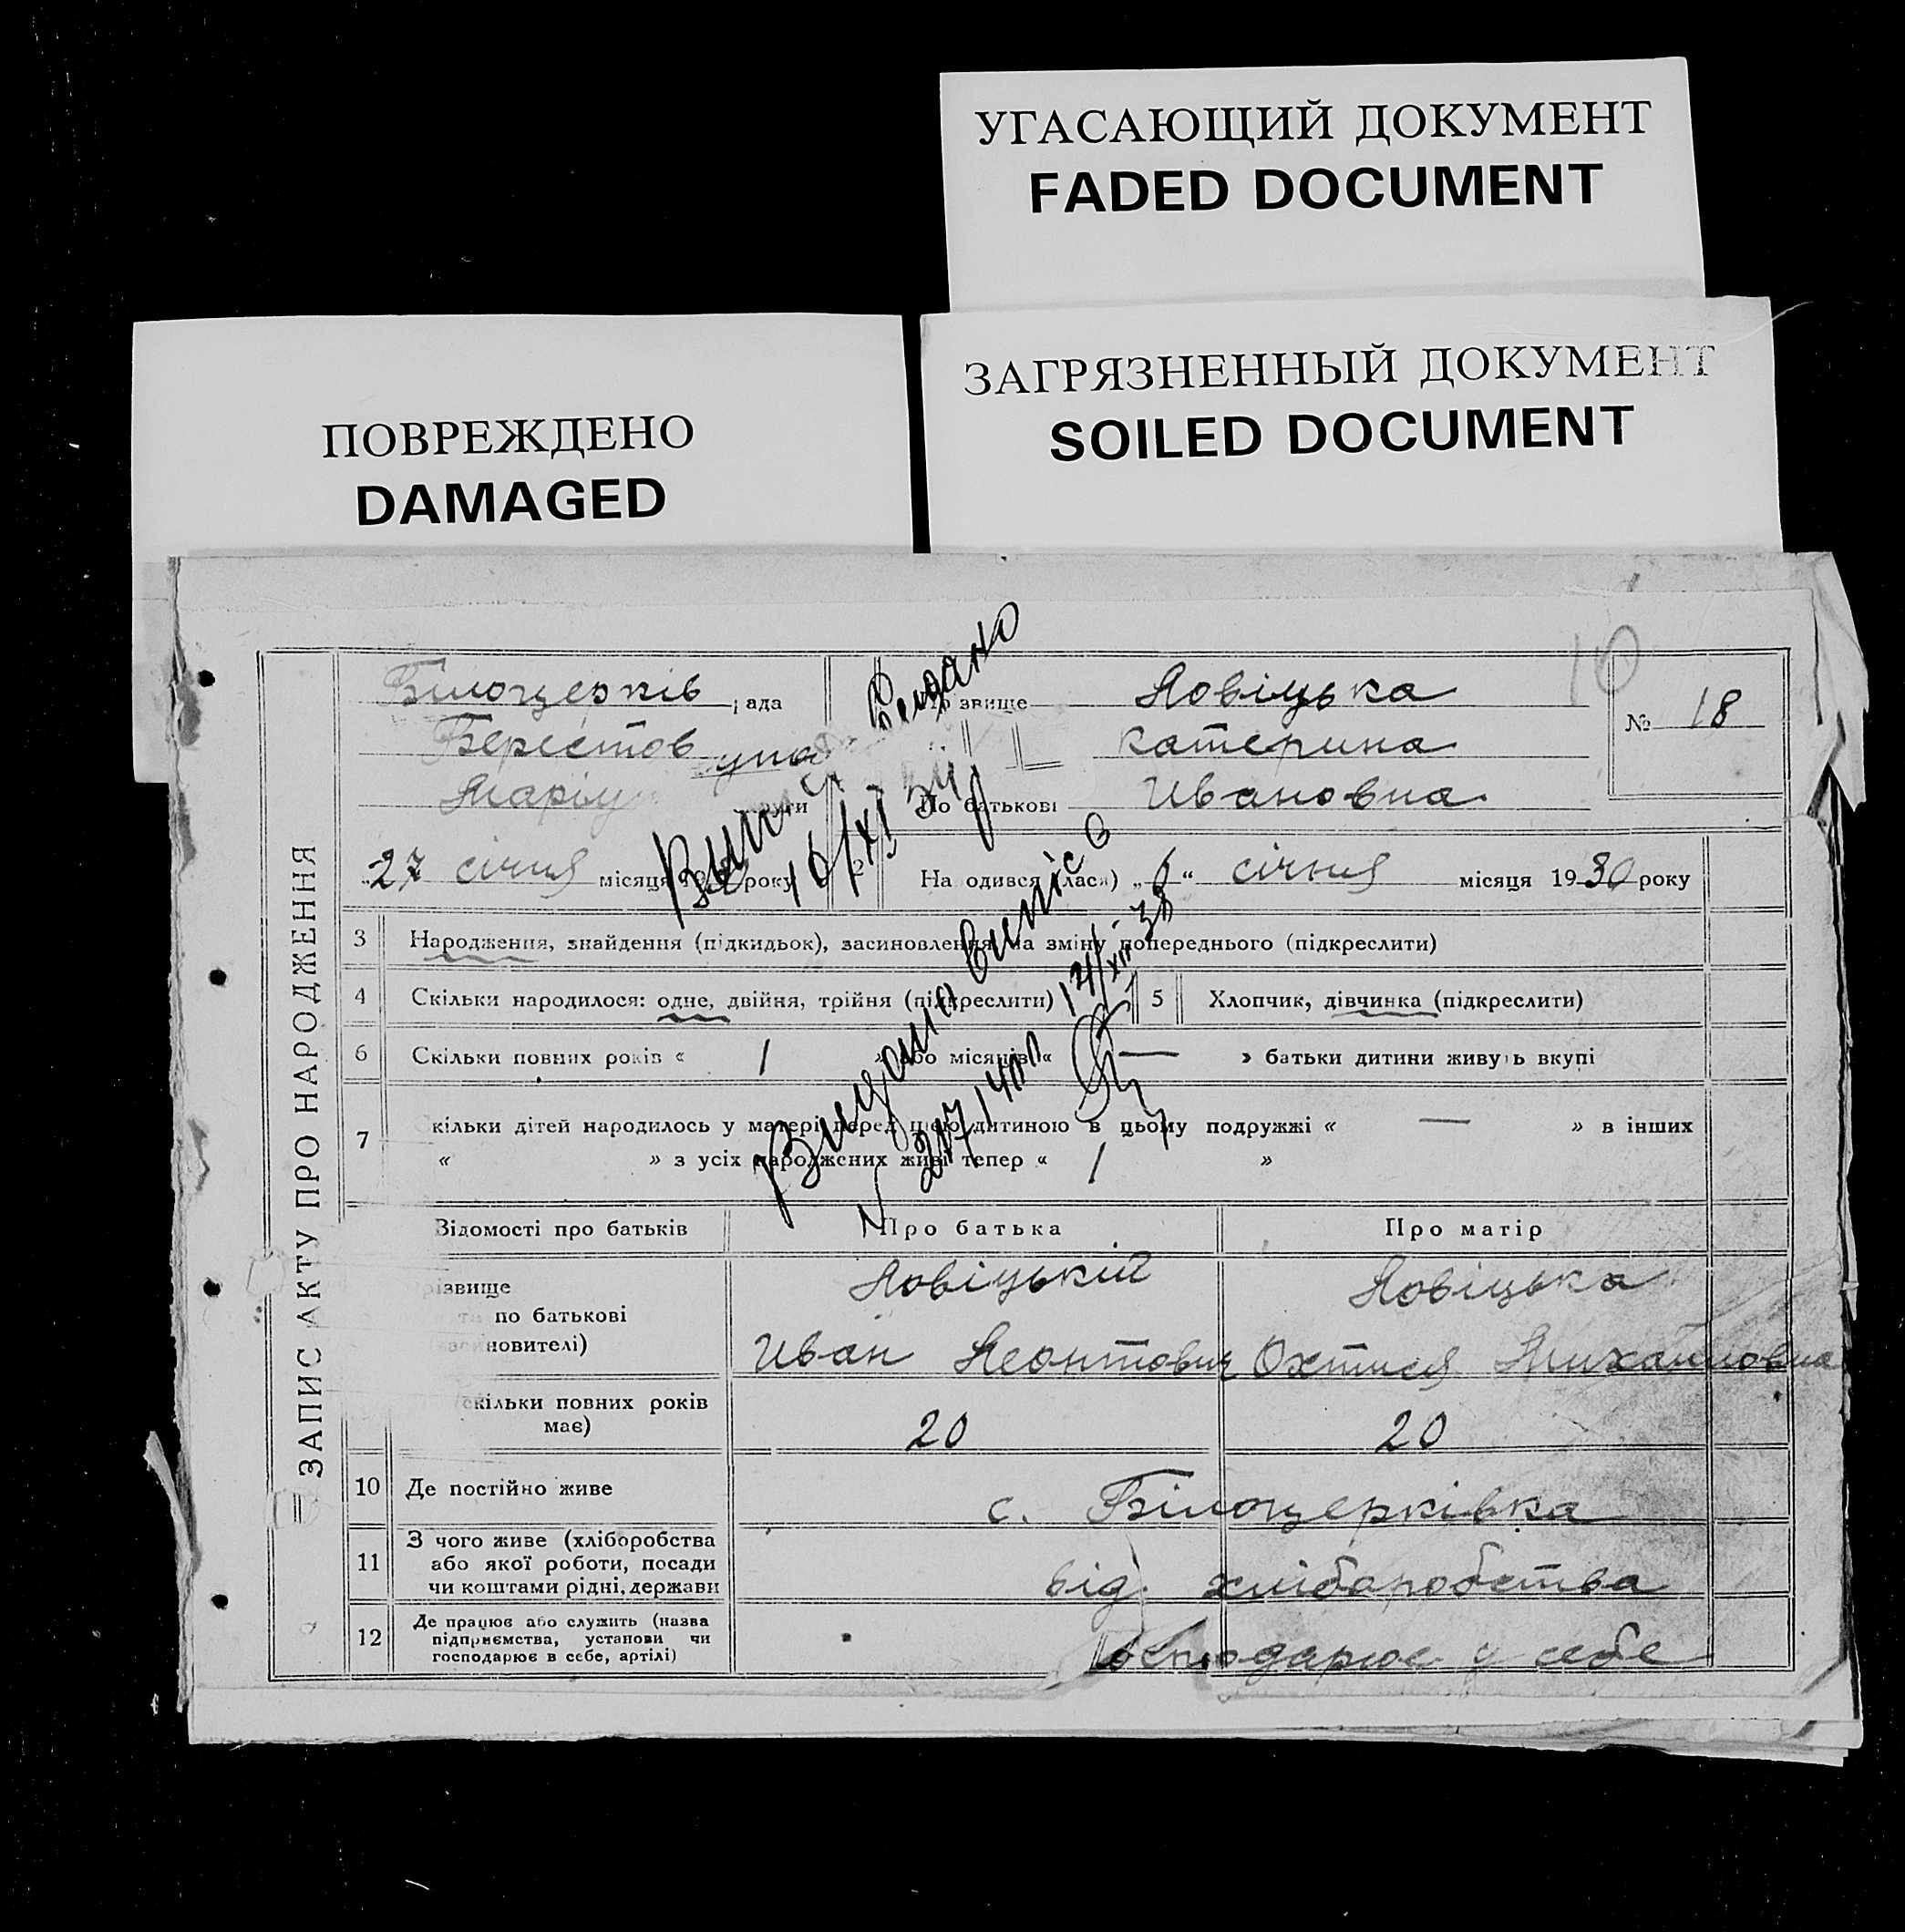 УГАСАЮЩИЙ ДОКУМЕНТ
FADED DOCUMENT
ЗАГРЯЗНЕННЫЙ ДОКУМЕНТ
SOILED DOCUMENT
ПОВРЕЖДЕНО
DAMAGED
10
ЗАПИС АКТУ ПРО НАРОДЖЕННЯ
Білоцерків ада
Берестов
Маріу
звище Новіцька
Катерина
По батькові Ивановна
№ 18
27 січня місяця 19 року
2 На одився лася) „6“ січня місяця 1930 року
3 Народження, знайдення (підкидьок), засиновлення на зміну попереднього (підкреслити)
4 Скільки народилося: одне, двійня, трійня (підкреслити)
5 Хлопчик, дівчинка (підкреслити)
6 Скільки повних років « 1 » або місяців « — » батьки дитини живуть вкупі
7 кільки дітей народилось у матері перед цією дитиною в цьому подружжі « — » в інших
« » з усіх народжених живі тепер « 1 »
Видано
Видано випис
Відомості про батьків Про батька Про матір
різвище Новіцький Новіцька
по батькові
новителі) Иван Леонтович Охтися Михайловна
скільки повних років
має) 20 20
10 Де постійно живе с. Білоцерківка
11 З чого живе (хліборобства
або якої роботи, посади
чи коштами рідні, держави від хліборобства
12 Де працює або служить (назва
підприємства, установи чи
господарює в себе, артілі) господарює у себе